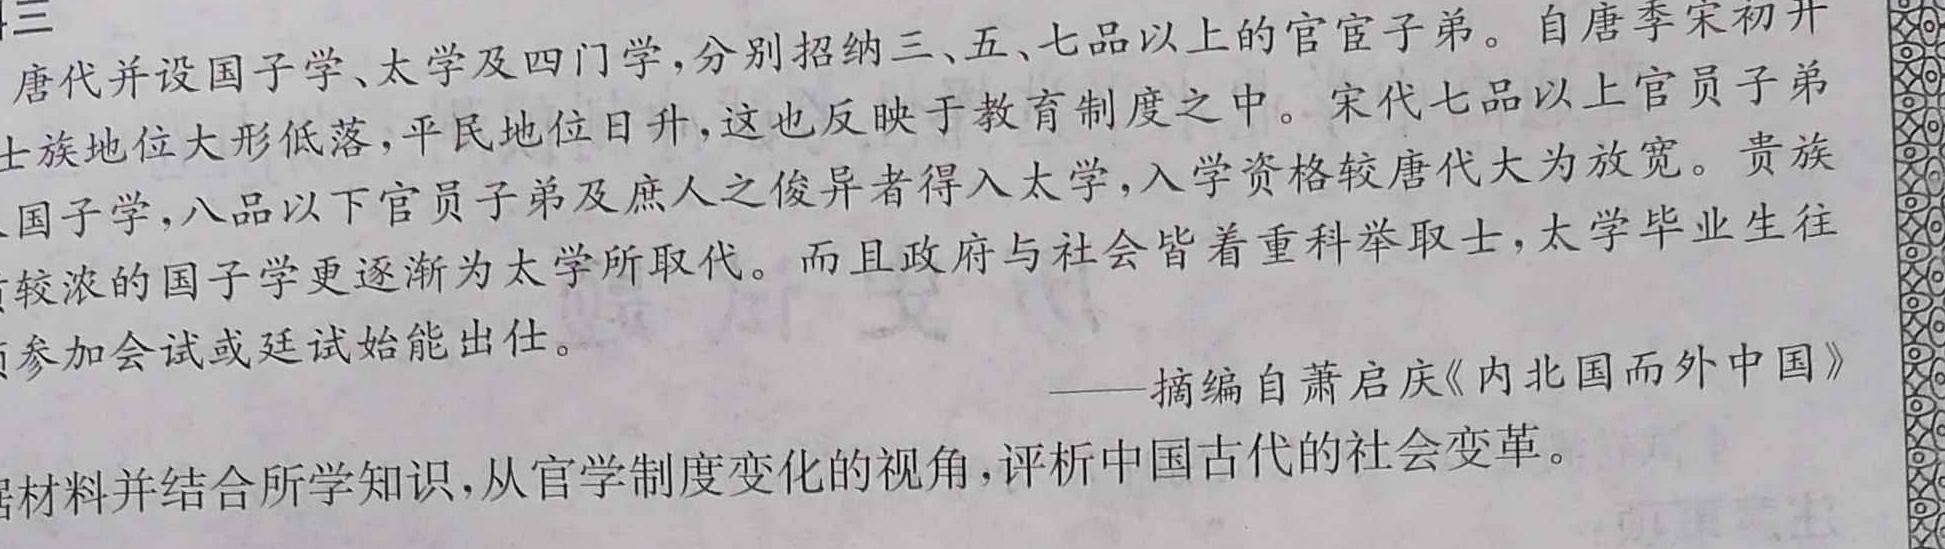 三
唐代并设国子学、太学及四门学，分别招纳三、五、七品以上的官宦子弟。自唐季宋初开
士族地位大形低落，平民地位日升，这也反映于教育制度之中。宋代七品以上官员子弟
国子学，八品以下官员子弟及庶人之俊异者得入太学，入学资格较唐代大为放宽。贵族
较浓的国子学更逐渐为太学所取代。而且政府与社会皆着重科举取士，太学毕业生往
参加会试或廷试始能出仕。
——摘编自萧启庆《内北国而外中国》
材料并结合所学知识，从官学制度变化的视角，评析中国古代的社会变革。